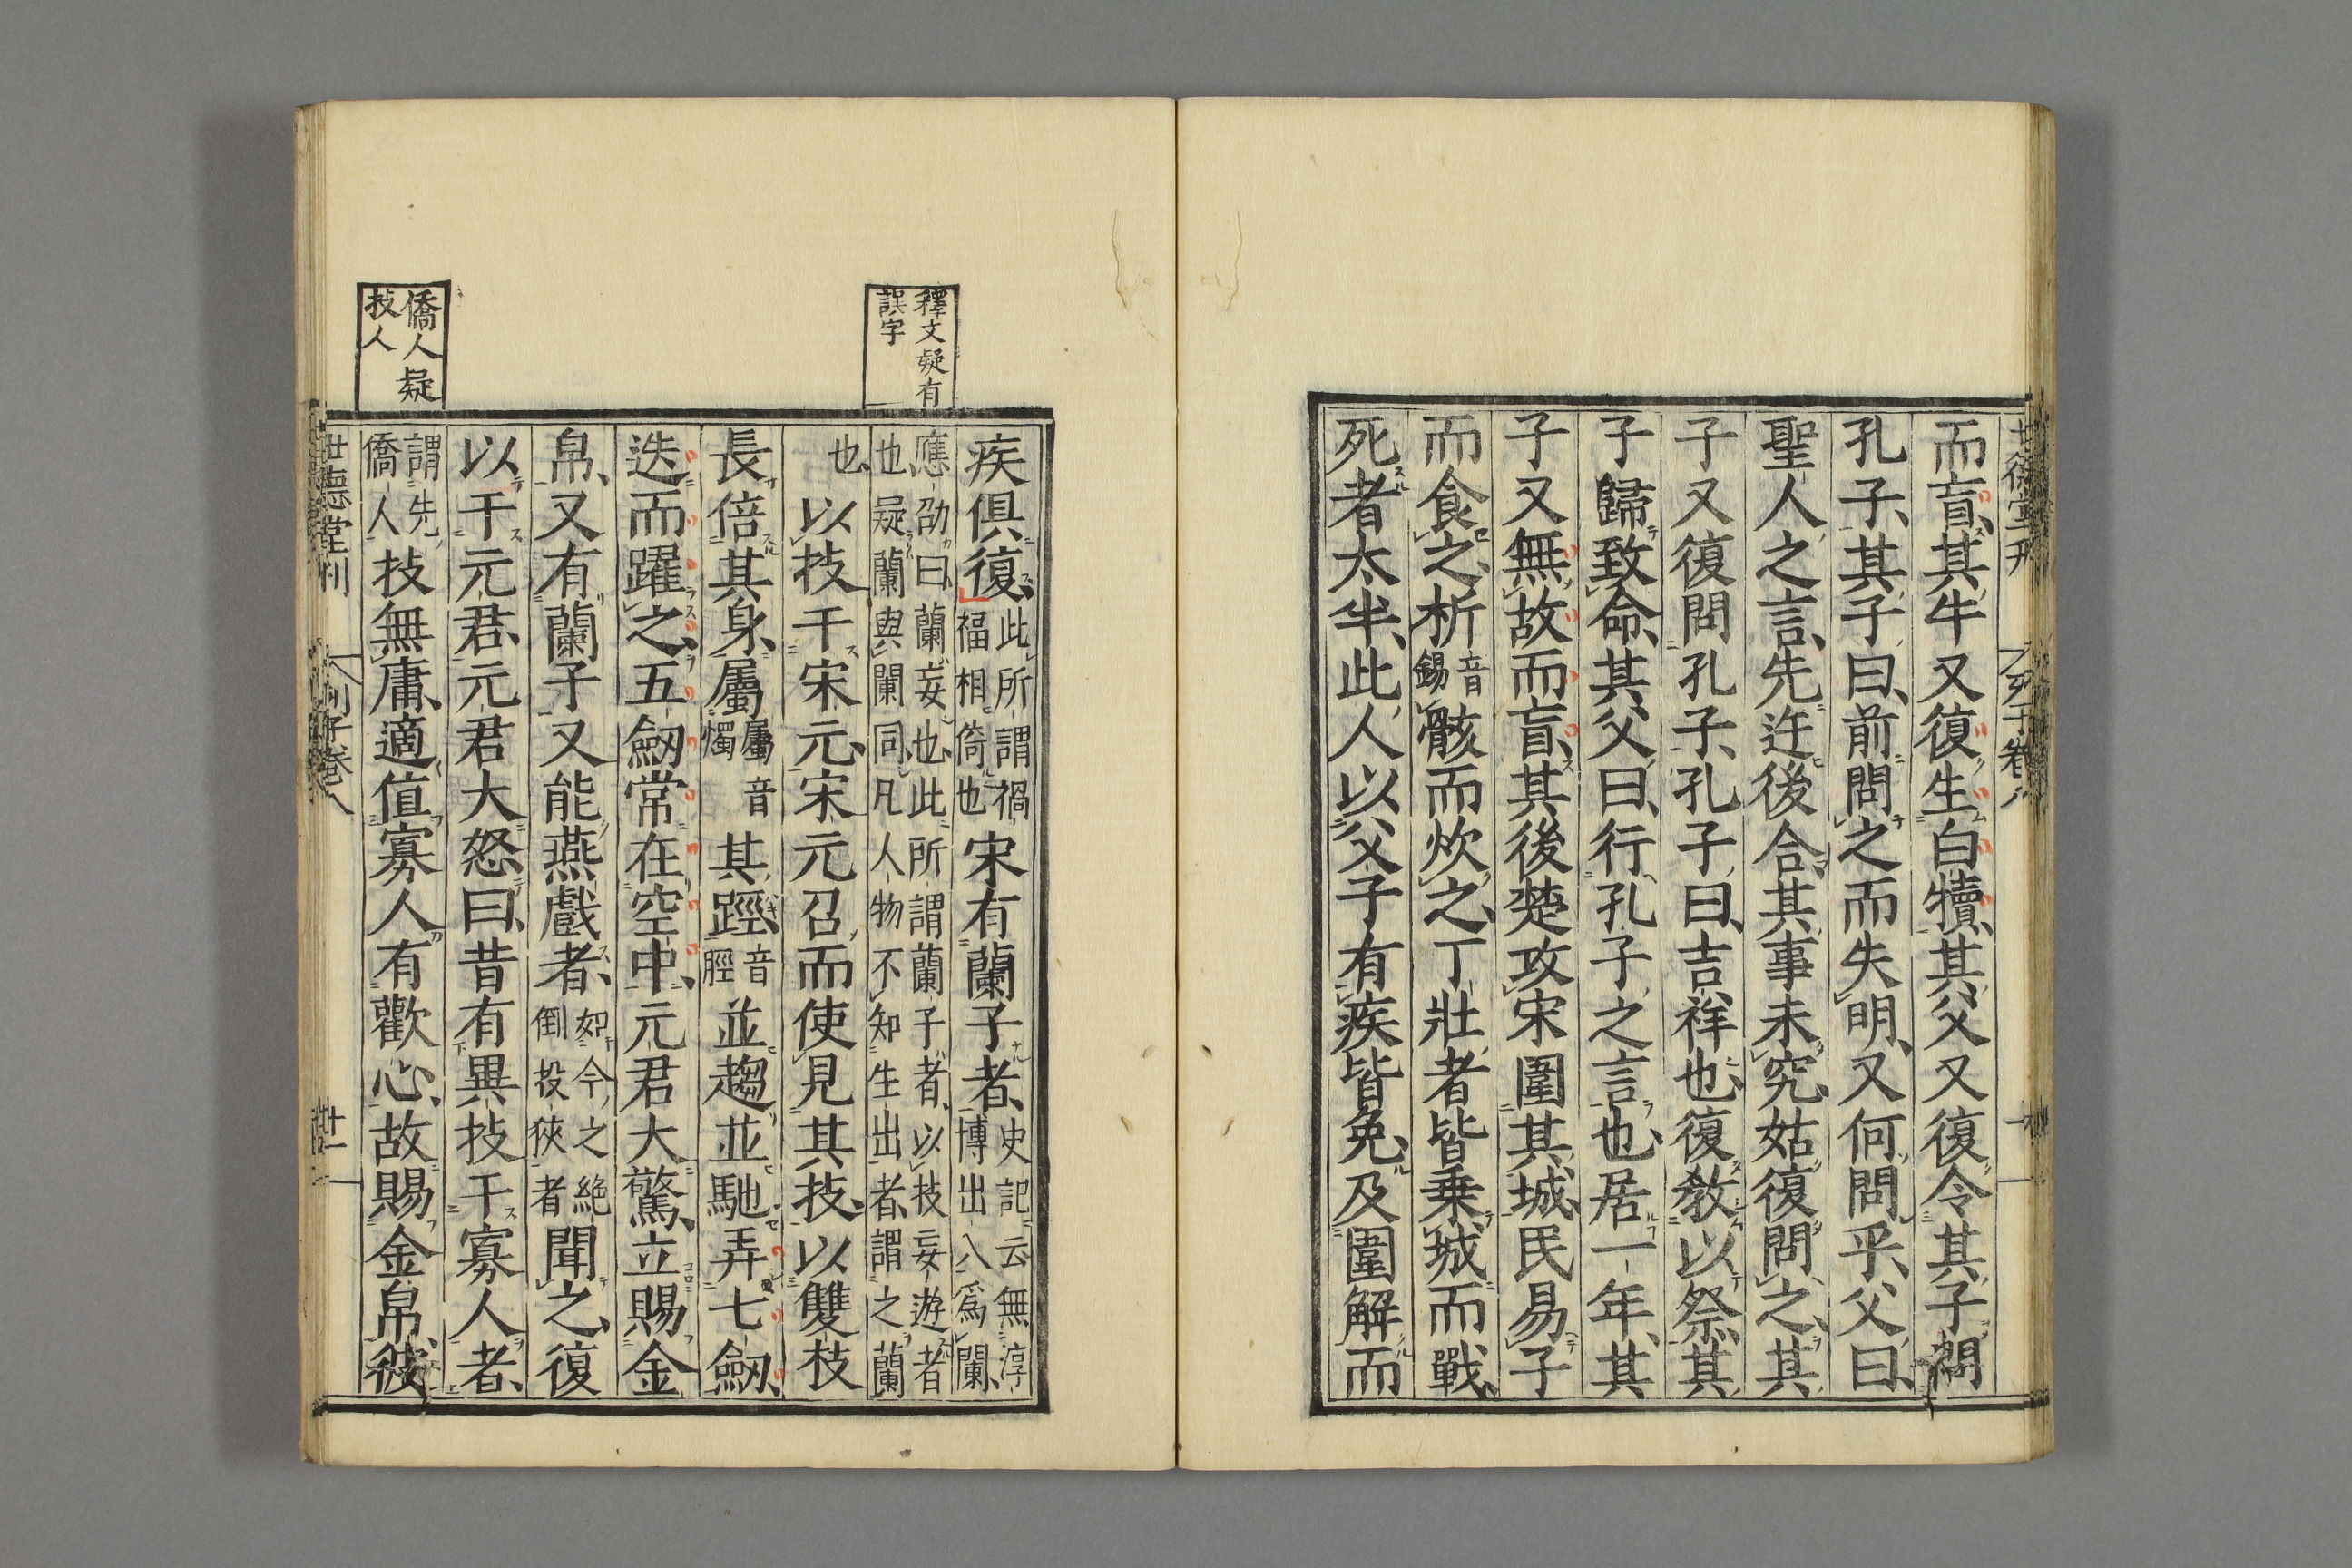 而盲其牛又復生白犢其父又復令其子問
孔子其子曰前問之而失明又何問乎父曰
聖人之言先迕後合其事未究姑復問之其
子又復問孔子孔子曰吉祥也復教以祭其
子歸致命其父曰行孔子之言也居一年其
子又無故而盲其後楚攻宋圍其城民易子
而食之析音錫骸而炊之丁壯者皆乗城而戰
死者太半此人以父子有疾皆免及圍解而
釋文疑有
誤字
疾俱復此所謂禍福相倚也宋有蘭子者史記云無淳博出入爲闌
應劭曰蘭妄也此所謂蘭子者以技妄遊者
也疑蘭與闌同凡人物不知生出者謂之蘭
也以技干宋元宋元召而使見其技以雙枝
長倍其身屬屬音燭其踁音脛並趨並馳弄七劒
迭而躍之五劒常在空中元君大驚立賜金
帛又有蘭子又能燕戲者如今之絶倒投狹者聞之復
以干元君元君大怒曰昔有異技干寡人者
僑人疑
技人
謂先僑人技無庸適值寡人有歡心故賜金帛彼
世德堂刊
列子卷八
廿一